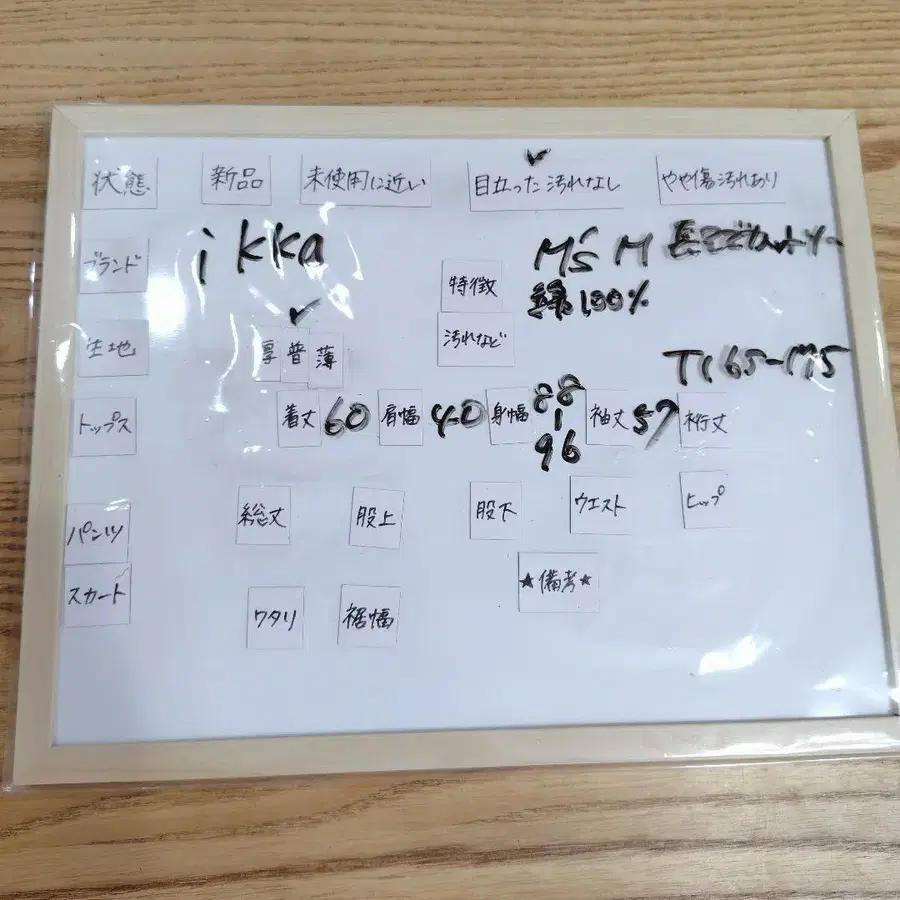 状態 新品 未使用に近い 目立った汚れなし やや傷汚れあり
ブランド ikka 特徴 M'S M 長そでカットソー
綿100%
生地 厚 普 薄 汚れなど T165-175
トップス 着丈 60 肩幅 40 身幅 88 | 96 袖丈 57 裄丈
パンツ 総丈 股上 股下 ウエスト ヒップ
スカート ワタリ 裾幅 ★備考★